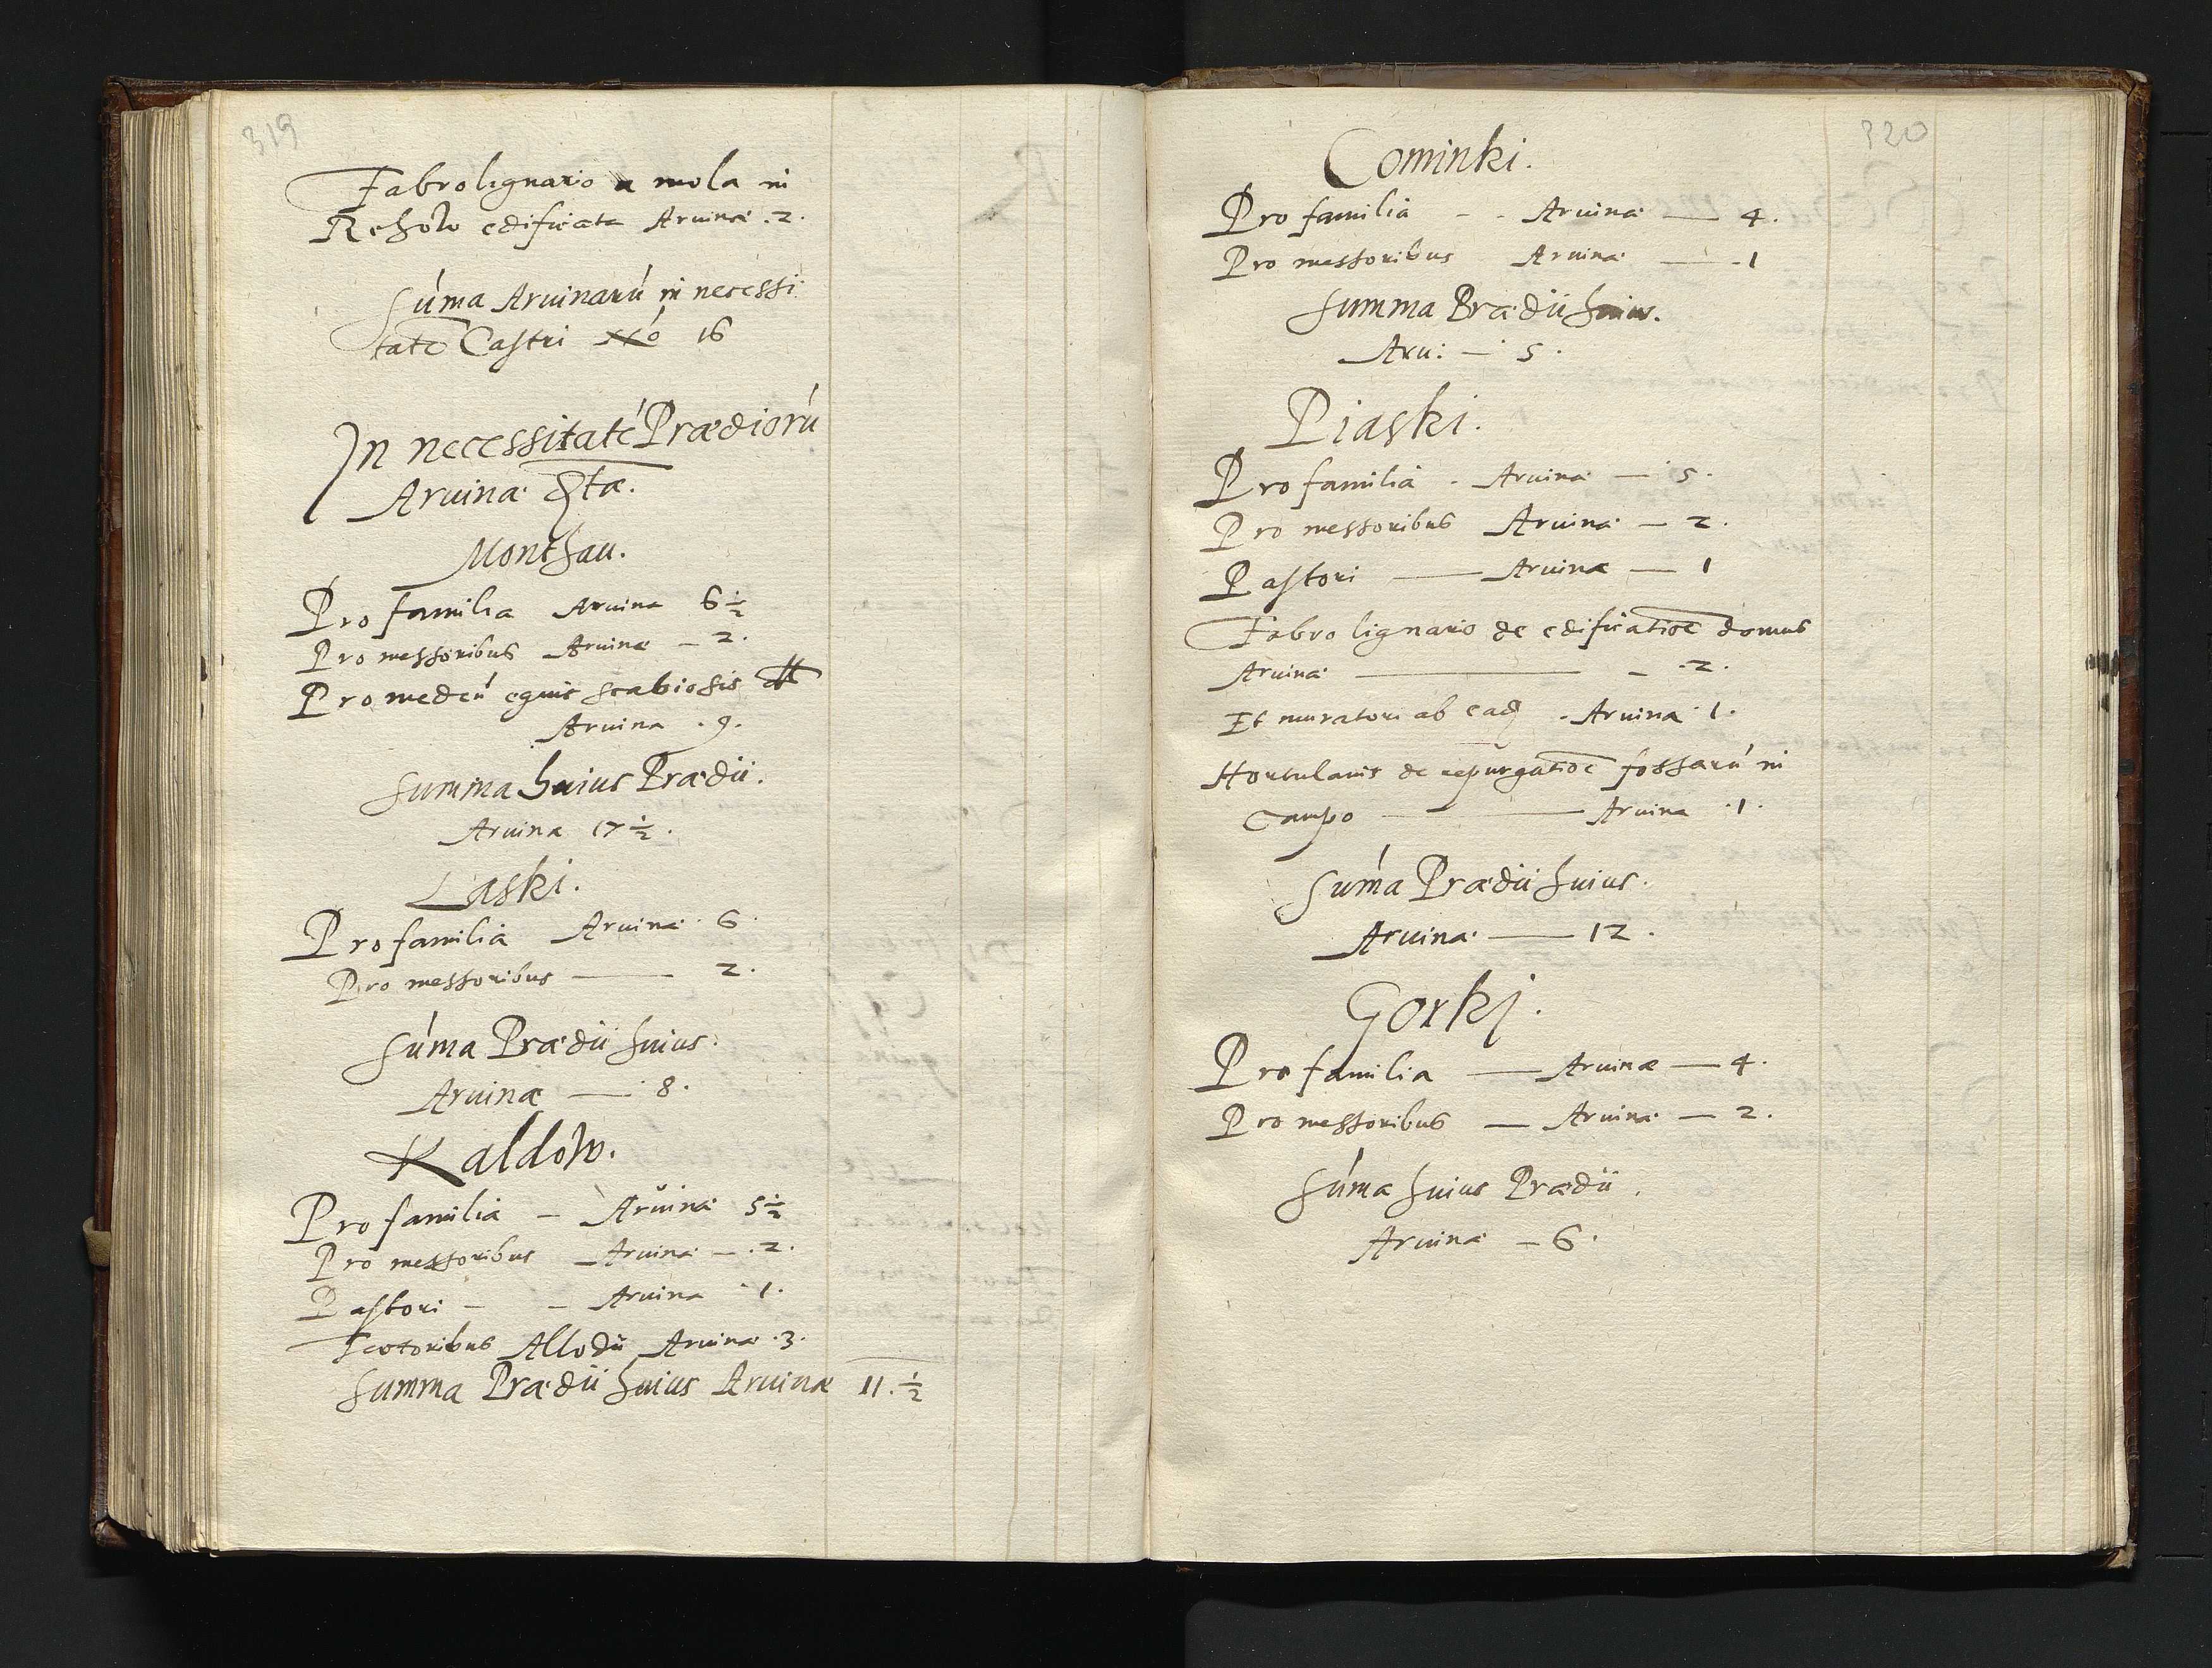 319
Fabro lignario a mola in
Rehow edificata Aruinæ .2.
Sum̃a Aruinarũ in necessi
tatẽ Castri 16
In necessitatẽ Prædiorũ
Aruinæ
Monthau.
Pro familia Aruina 6½
Pro messoribus Aruinæ – 2.
Pro equis scabiosis
Aruina . 9.
Summa huius Prædii.
Aruinæ 17½.
Laski.
Pro familia Aruinæ 6
Pro messoribus — 2.
Sum̃a Prædii huius.
Aruinæ — 8.
Kaldow.
Pro familia – Aruinæ 5½
Pro messoribus – Aruinæ – .2.
Pastori – – Aruina 1.
Allodii Aruinæ .3.
Summa Prædii huius Aruinæ 11.½
320
Cominki.
Pro familia - - Aruinæ — 4.
Pro messoribus Aruina — 1
Summa Prædii huius.
Aru: — 5.
Piaski.
Pro familia - Aruinæ — 5.
Pro messoribus Aruinæ — 2.
Pastori — Aruinæ — 1
Fabro lignario de edificatiõe domus
Aruinæ — – .2.
Et muratori ab eadẽ - Aruina 1.
Hortulanis de repurgatiõe fossarũ in
Campo — Aruina .1.
Sum̃a Prædii huius.
Aruinæ — 12.
Gorkj.
Pro familia — Aruinæ — 4.
Pro messoribus — Aruinæ — 2.
Sum̃a huius Prædii.
Aruinæ – 6.